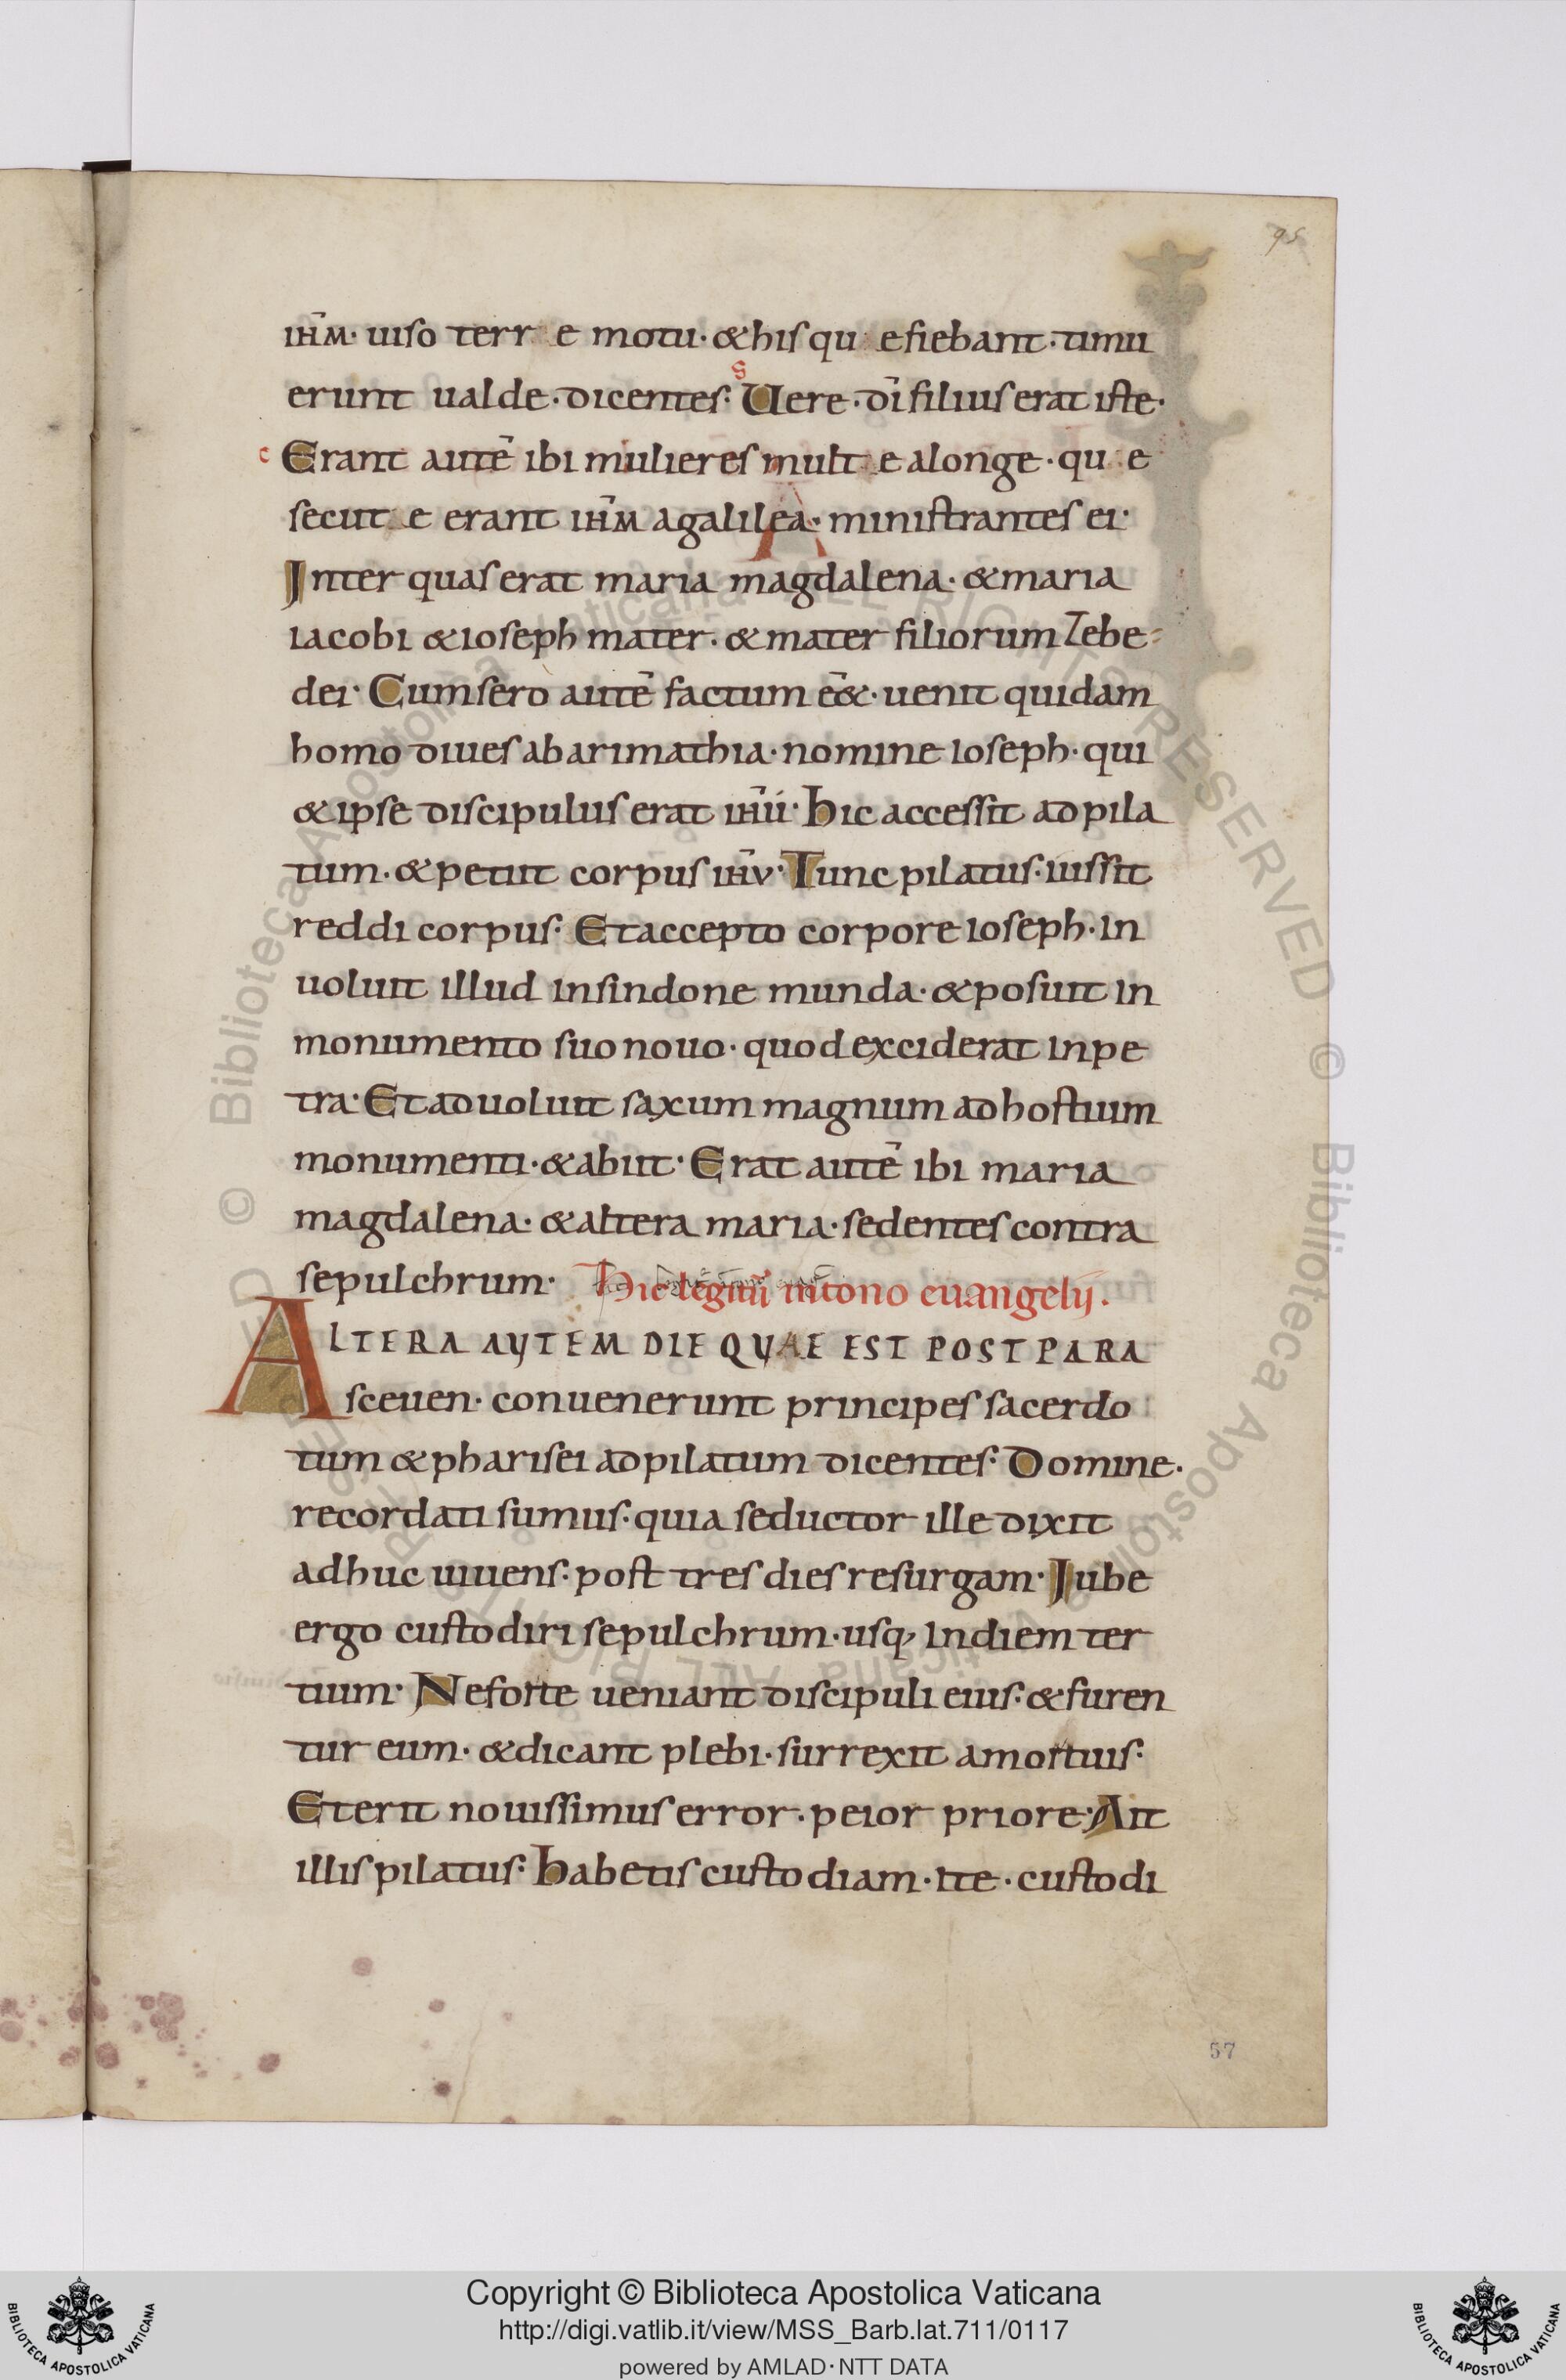 95
ih̄m· uiso terr e motu· & his qu e fiebant· timu
s
erunt ualde· dicentes· Uere· dī filius erat iste·
c Erant autē ibi mulieres mult e alonge· qu e
secut e erant ih̄m agalilea· ministrantes ei·
Inter quas erat maria magdalena· & maria
iacobi & ioseph mater· & mater filiorum Zebe
dei· Cum sero autē factum ēēt· uenit quidam
homo diues ab arimathia· nomine ioseph· qui
& ipse discipulus erat ih̄u· hic accessit ad pila
tum· & petiit corpus ih̄u· Tunc pilatus· iussit
reddi corpus· Et accepto corpore ioseph· in
uoluit illud in sindone munda· & posuit in
monumento suo nouo· quod exciderat in pe
tra· Et aduoluit saxum magnum ad hostium
monumenti· & abiit· Erat autē ibi maria
magdalena· & altera maria· sedentes contra
sepulchrum· Hic legitur in tono euangelij.
ALTERA AUTEM DIE QUAE EST POST PARA
sceuen· conuenerunt principes sacerdo
tum & pharisei ad pilatum dicentes· Domine·
recordati sumus· quia seductor ille dixit
adhuc uiuens· post tres dies resurgam· Iube
ergo custodiri sepulchrum· usq; in diem ter
tium· Ne forte ueniant discipuli eius· & furen
tur eum· & dicant plebi· surrexit amortuis·
Et erit nouissimus error· peior priore· Ait
illis pilatus· habetis custodiam· ite· custodi
57
© Biblioteca Apostolica Vaticana ALL RIGHTS RESERVED © Biblioteca Apostolica Vaticana ALL RIGHTS RESERVED
Copyright © Biblioteca Apostolica Vaticana
http://digi.vatlib.it/view/MSS_Barb.lat.711/0117
powered by AMLAD·NTT DATA
BIBLIOTECA APOSTOLICA VATICANA
BIBLIOTECA APOSTOLICA VATICANA